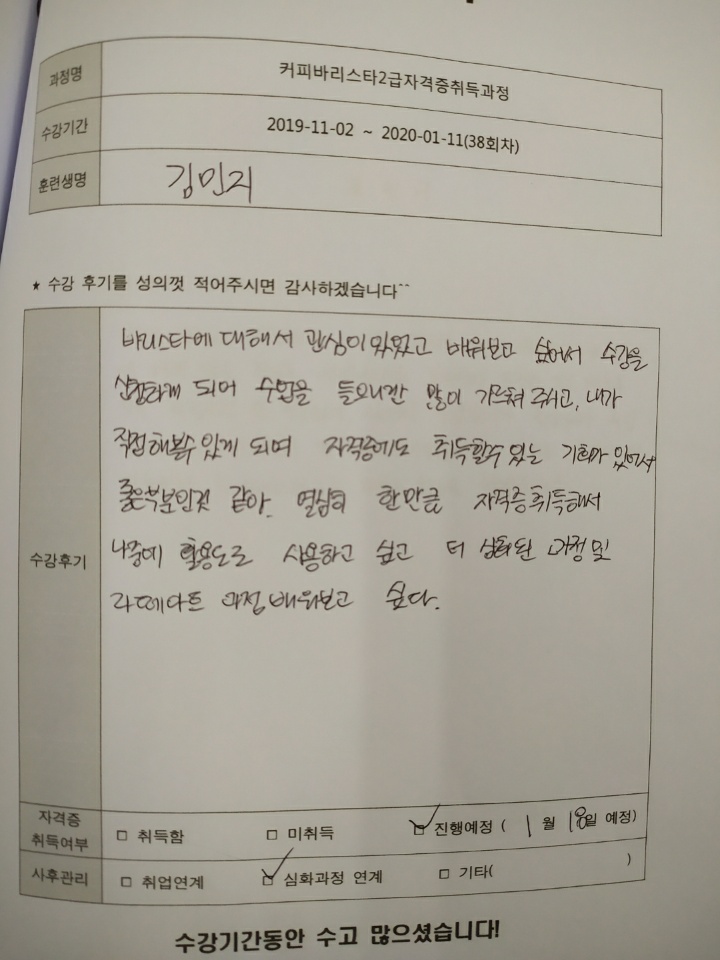 과정명 커피바리스타2급자격증취득과정
수강기간 2019-11-02 ~ 2020-01-11(38회차)
훈련생명 김민지
★ 수강 후기를 성의껏 적어주시면 감사하겠습니다^^
바리스타에 대해서 관심이 있었고 배워보고 싶어서 수강을
신청하게 되어 수업을 들으니깐 많이 가르쳐 주시고, 내가
직접해볼수 있게 되며 자격증에도 취득할수 있는 기회가 있어서
좋은부분인것 같아. 열심히 한만큼 자격증취득해서
수강후기
나중에 활용도로 사용하고 싶고 더 심화된 과정 및
라떼아트 과정 배워보고 싶다.
자격증 취득여부 □ 취득함 □ 미취득 ☑ 진행예정 ( 1월 18일 예정)
사후관리 □ 취업연계 ☑ 심화과정 연계 □ 기타( )
수강기간동안 수고 많으셨습니다!